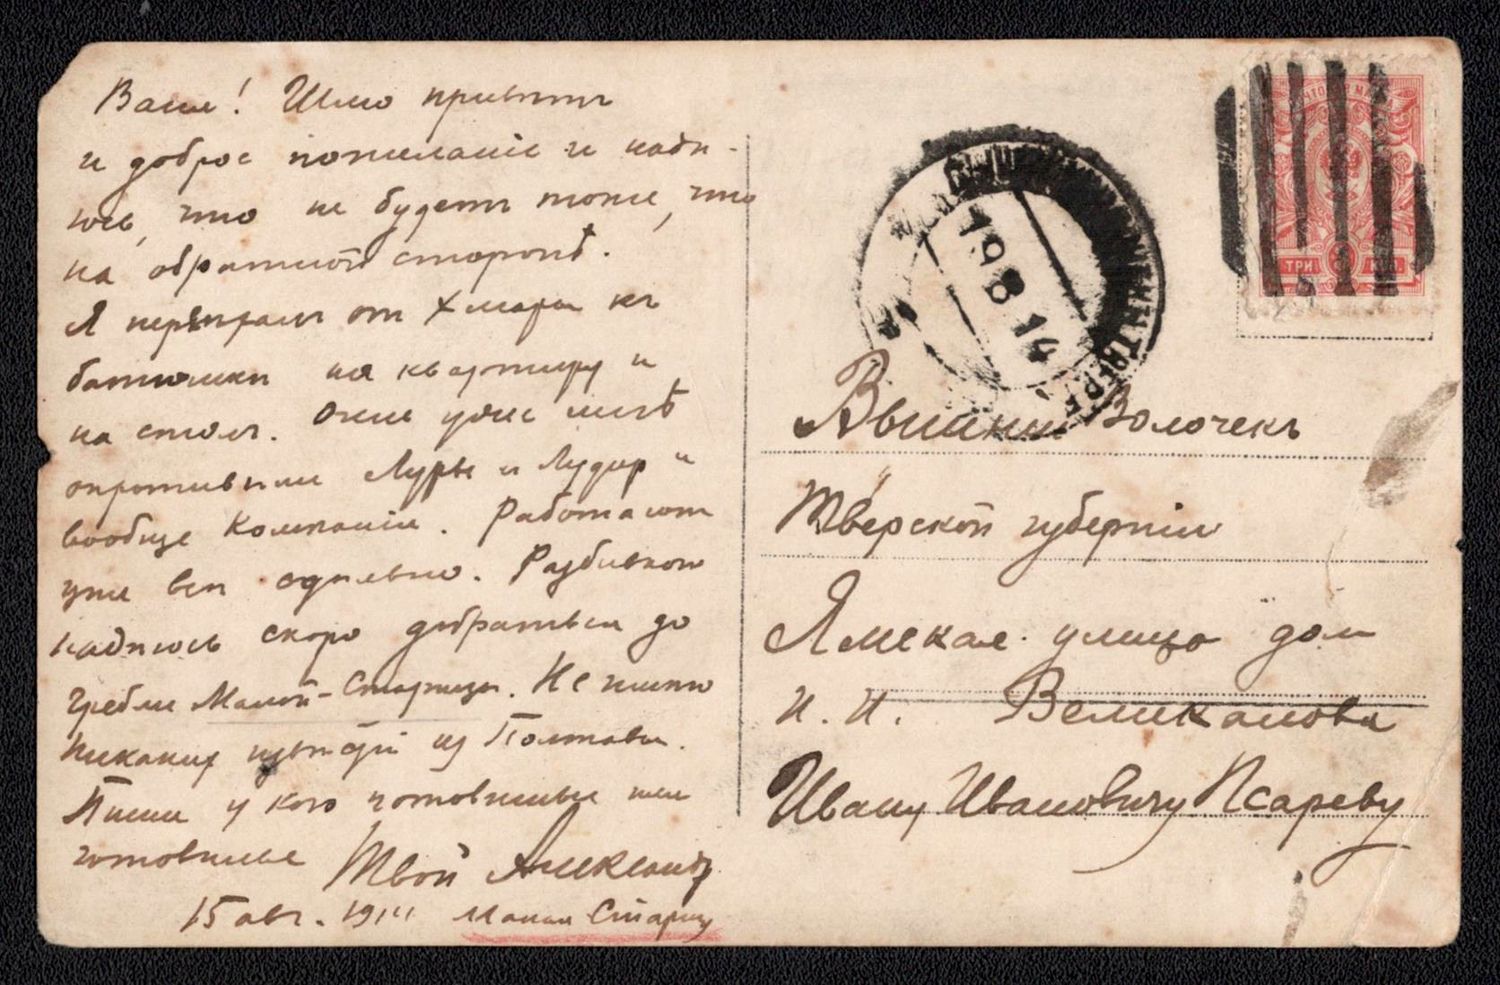 Ваня! Шлю привѣтъ
и доброе пожеланіе и надѣ-
юсь, что не будетъ тоже, что
на обратной сторонѣ.
Я переѣхалъ отъ Хмары къ
батюшкѣ на квартиру и
на столъ. Очень уже мнѣ
опротивѣли и
вообще Компанія. Работаютъ
уже всѣ отдѣльно. Разбивкою
надѣюсь скоро добраться до
гребли Малой-Старицы. Не имѣю
никакихъ извѣстій изъ Полтавы.
Пиши у кого готовишься или
готовился Твой Александръ
15 авг. 1914 Малая Старица
ТРИ КОП
19 8 14
Вышній Волочекъ
Тверской губерніи
Ямская улица дом
И. И. Великанова
Ивану Ивановичу Псареву